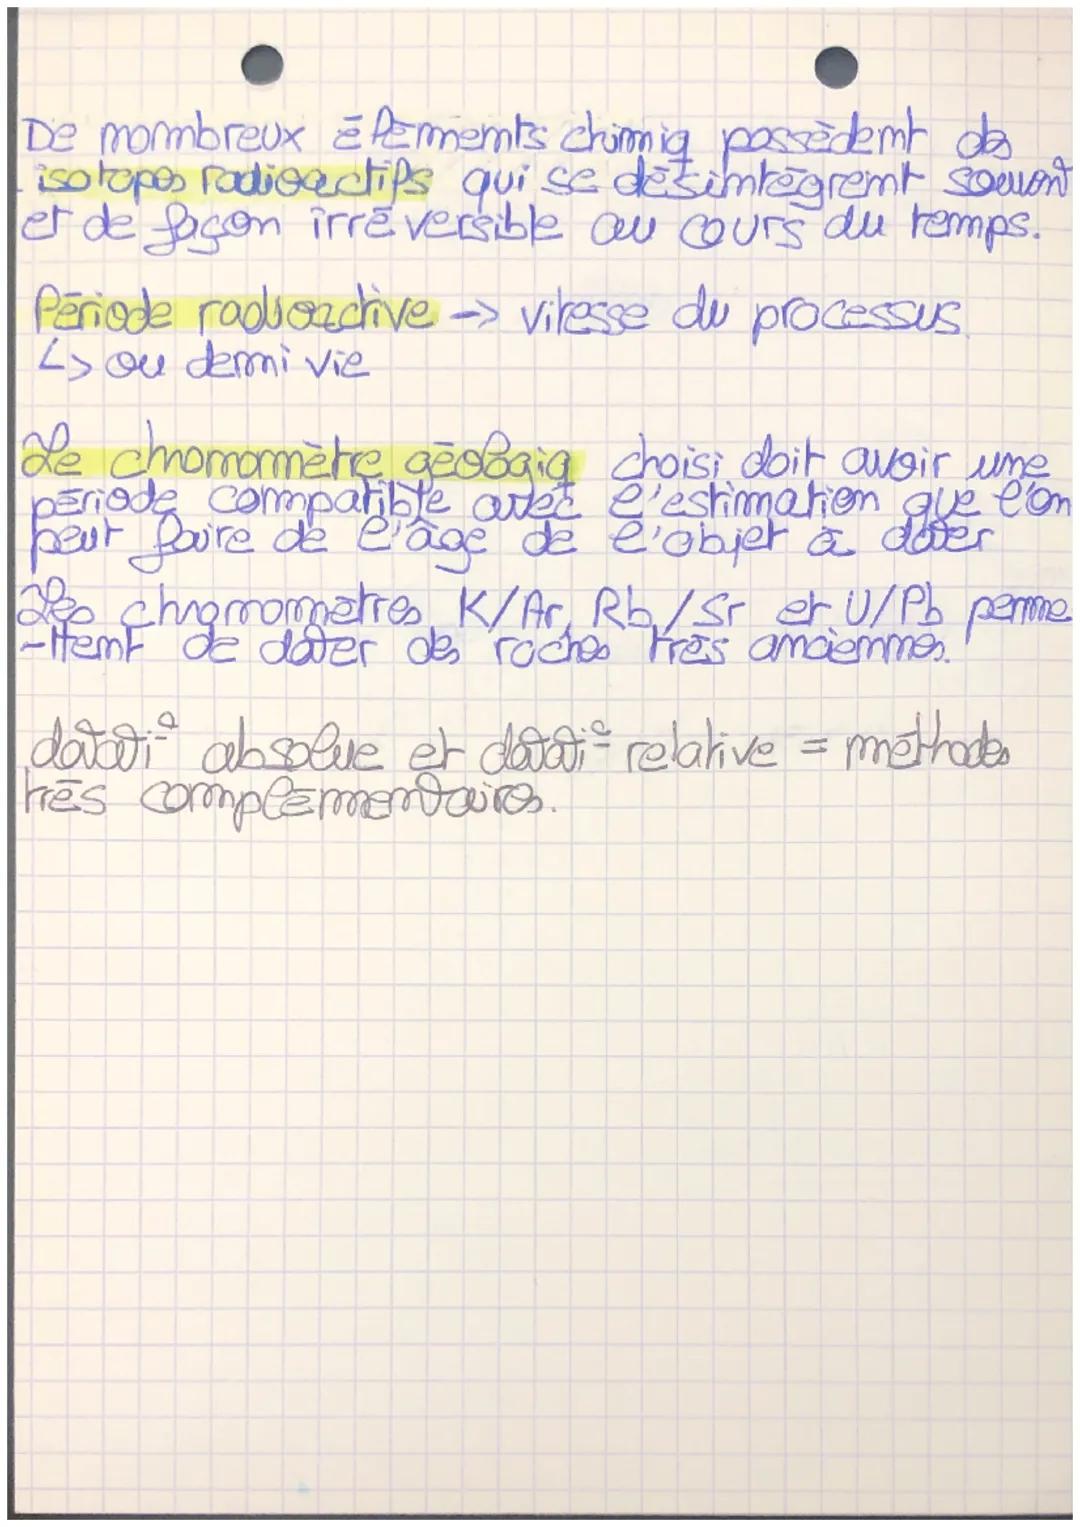 De nombreux éléments chimiq possèdent des
isotopes radioactifs qui se désintègrent souvent
et de façon irréversible au cours du temps.
Période radioactive -> vitesse du processus.
↳ ou demi vie
Le chronomètre géologiq choisi doit avoir une
période compatible avec l'estimation que l'on
peut faire de l'âge de l'objet à dater
Les chronomètres K/Ar, Rb/Sr et U/Pb perme
-ttent de dater des roches très anciennes.
datati° absolue et datati° relative = méthodes
très complémentaires.